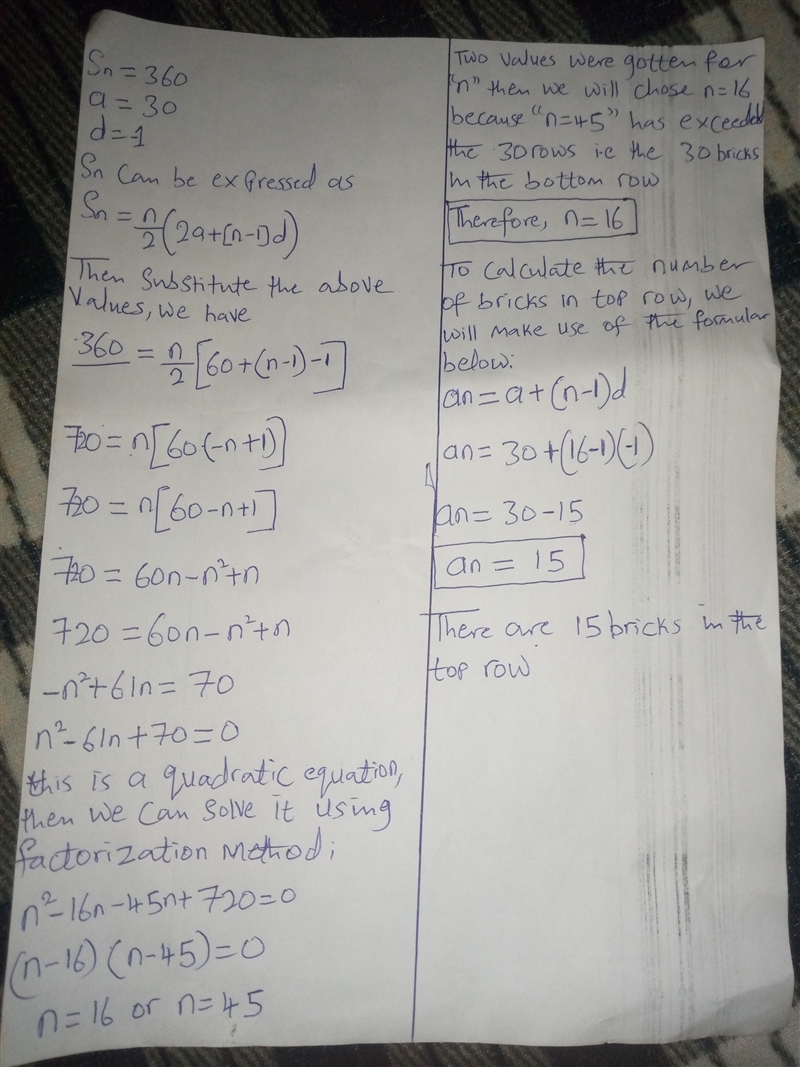 Sn = 360
a = 30
d = -1
Sn can be expressed as
Sn = n/2 (2a+[n-1]d)
Then substitute the above
Values, we have
360 = n/2 [60+(n-1)-1]
720 = n[60(-n+1)]
720 = n[60-n+1]
720 = 60n-n²+n
720 = 60n-n²+n
-n²+61n = 70
n²-61n+70=0
this is a quadratic equation,
then we can solve it using
factorization method;
n²-16n-45n+720=0
(n-16) (n-45)=0
n=16 or n=45
Two values were gotten for
"n" then we will chose n=16
because "n=45" has exceeded
the 30 rows i.e the 30 bricks
in the bottom row
Therefore, n=16
To calculate the number
of bricks in top row, we
will make use of the formular
below:
an = a+(n-1)d
an = 30+(16-1)(-1)
an = 30-15
an = 15
There are 15 bricks in the
top row